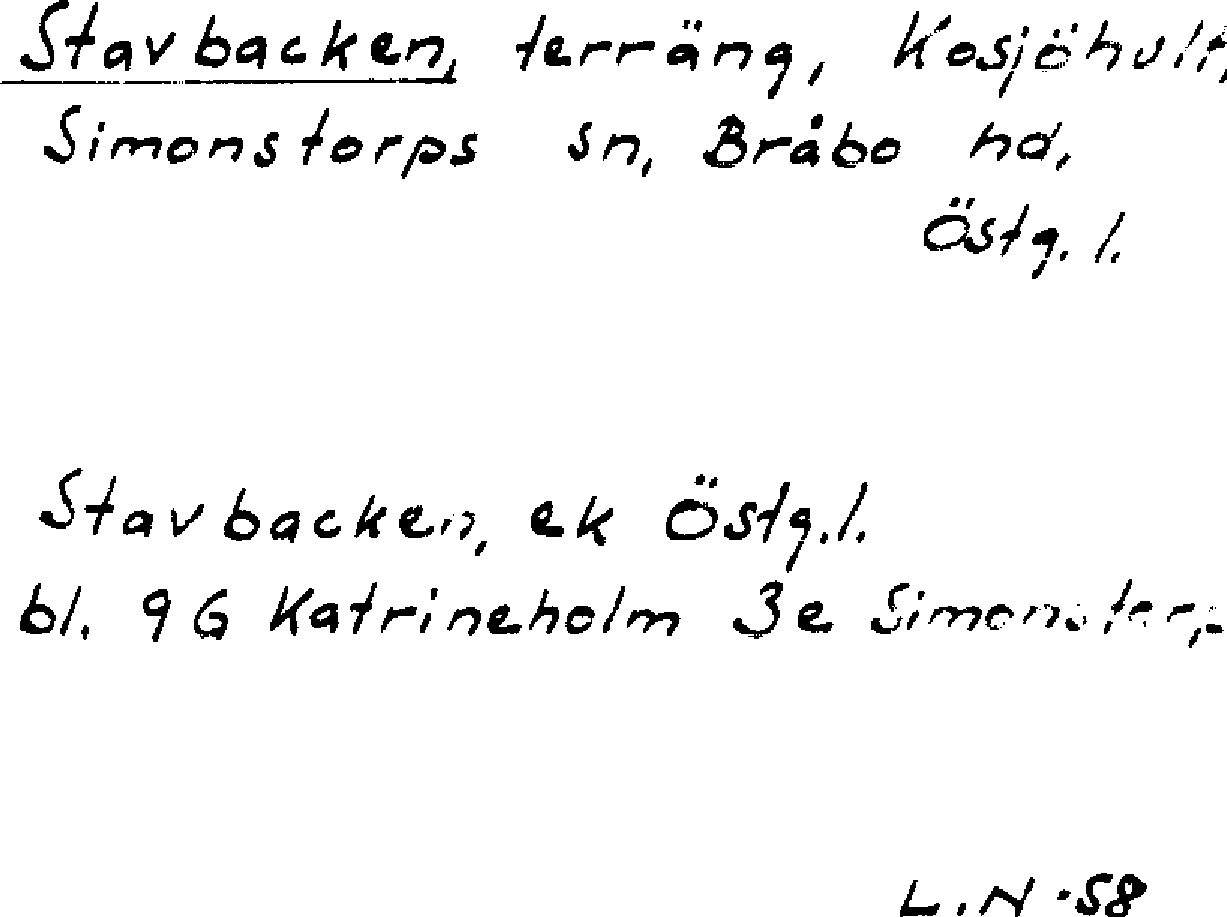 Stavbacken, terräng, Kosjöhult,
Simonstorps sn, Bråbo hd,
Östg. l.
Stavbacken, ek Östg. l.
bl. 9G Katrineholm 3e Simonstorp
L.N -58